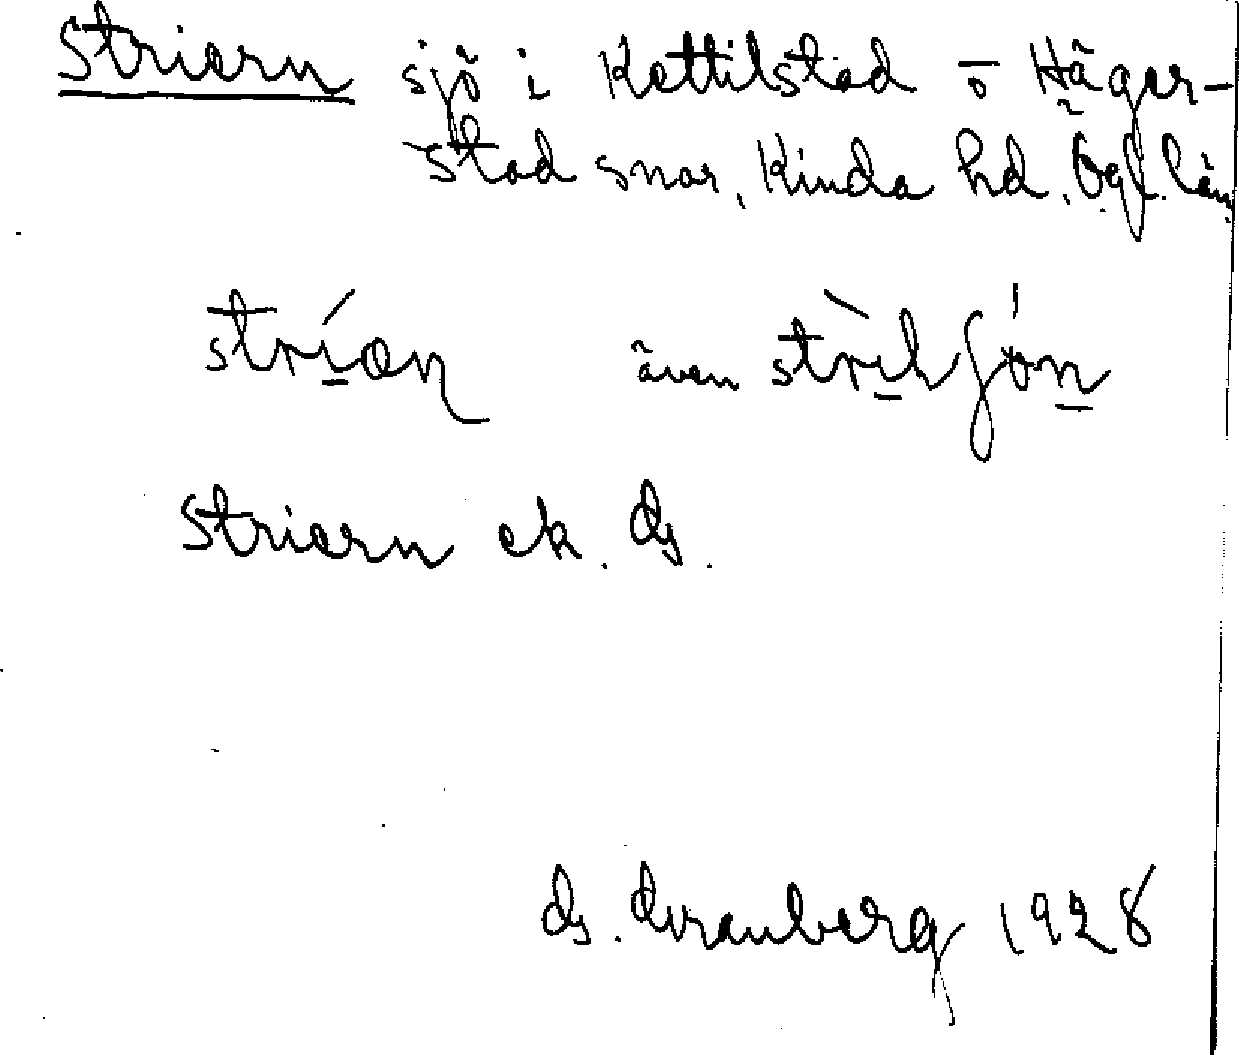 Striern sjö i Kettilstad o Häger-
stad snar, Kinda hd, Ögl. län
strían även strìhʃón
Striern ek. ds.
ds. Granberg 1928